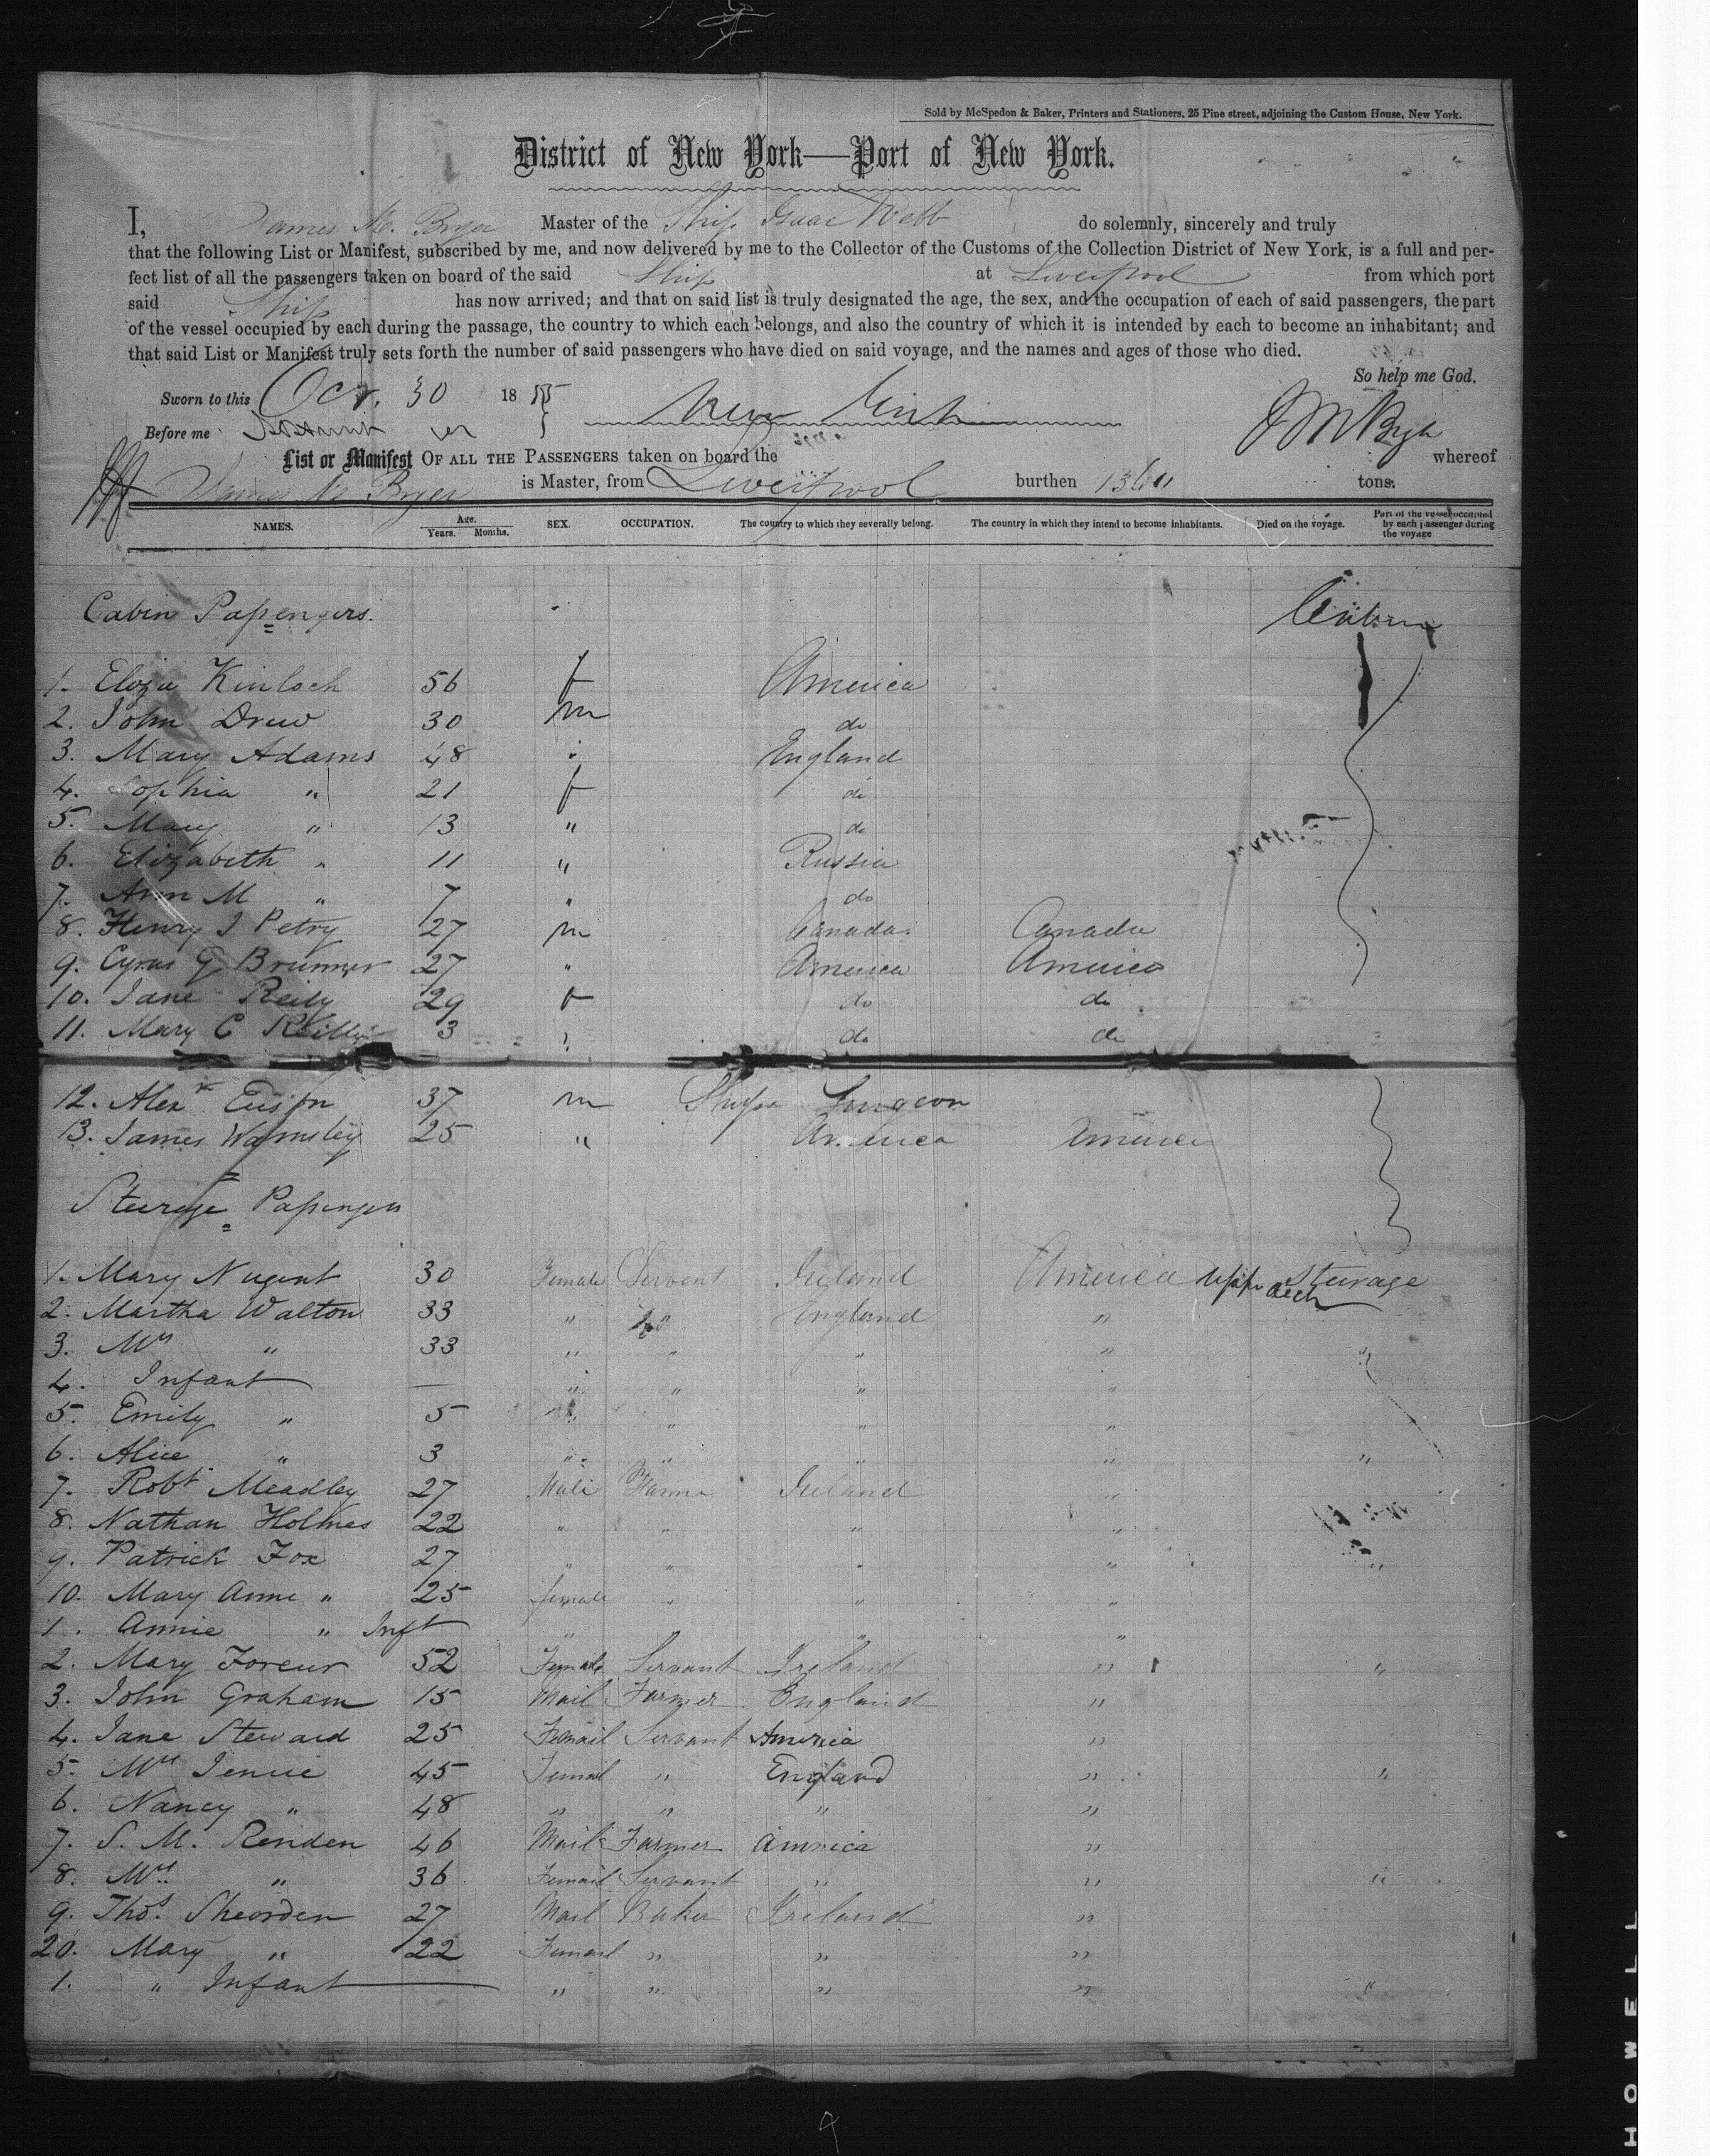 Sold by McSpedon & Baker, Printers and Stationers, 25 Pine street, adjoining the Custom House, New York.
District of New York—Port of New York.
I, James M. Bryer Master of the Ship Isaac Webb do solemnly, sincerely and truly
that the following List or Manifest, subscribed by me, and now delivered by me to the Collector of the Customs of the Collection District of New York, is a full and per-
fect list of all the passengers taken on board of the said Ship at Liverpool from which port
said Ship has now arrived; and that on said list is truly designated the age, the sex, and the occupation of each of said passengers, the part
of the vessel occupied by each during the passage, the country to which each belongs, and also the country of which it is intended by each to become an inhabitant; and
that said List or Manifest truly sets forth the number of said passengers who have died on said voyage, and the names and ages of those who died.
So help me God.
Sworn to this Oct. 30 18
Before me
List or Manifest OF ALL THE PASSENGERS taken on board the whereof
James M. Bryer is Master, from Liverpool burthen 1360 tons.
NAMES. Age. Years. Months. SEX. OCCUPATION. The country to which they severally belong. The country in which they intend to become inhabitants. Died on the voyage. Part of the vessel occupied by each passenger during the voyage
Cabin Passengers.
1. Eliza Kinloch 56 f America
2. John Drew 30 m do
3. Mary Adams 48 England
4. Sophia " 21 f do
5. Mary " 13 " do
6. Elizabeth " 11 " Russia
7. Ann M " 7 " do
8. Henry J Petry 27 m Canada Canada
9. Cyrus G Brunner 27 " America America
10. Jane Reily 29 f do do
11. Mary C Reilly 3 " do do
12. Alexr 37 m Ships Surgeon
13. James Wamsley 25 " America America
Steerage Passengers
1. Mary Nugent 30 Female Servent Ireland America upper deck Sturage
2. Martha Walton 33 " " England "
3. Mrs " 33 " " " " "
4. Infant — " " " "
5. Emily " 5 " " " "
6. Alice " 3 " " " " "
7. Robt Meadley 27 Male Farmer Ireland "
8. Nathan Holmes 22 " " " "
9. Patrick Fox 27 " " " " "
10. Mary Anne " 25 female " " "
1. Annie " Inft " " "
2. Mary 52 Female Servant Ireland " "
3. John Graham 15 Mail Farmer England "
4. Jane Steward 25 Femail Servant America "
5. Mrs Jennie 45 Femail " England " "
6. Nancy " 48 " " " "
7. S. M. Renden 46 Mail Farmer America "
8. Mrs " 36 Femail Servant " " "
9. Thos. Sheorden 27 Mail Baker Ireland "
20. Mary " 22 Femail " " "
1. " Infant " " " " "
HOWELL